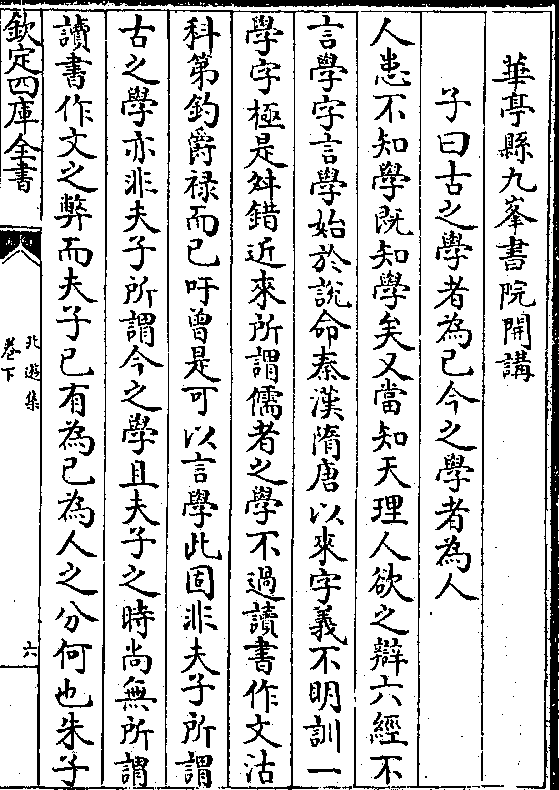 華亭縣九峯書院開講
子曰古之學者為己今之學者為人
人患不知學既知學矣又當知天理人欲之辯六經不
言學字言學始於說命秦漢隋唐以來字義不明訓一
學字極是舛錯近來所謂儒者之學不過讀書作文沽
科第釣爵祿而已吁曾是可以言學此固非夫子所謂
古之學亦非夫子所謂今之學且夫子之時尚無所謂
讀書作文之弊而夫子已有為己為人之分何也朱子
欽定四庫全書
北遊集
卷下
六